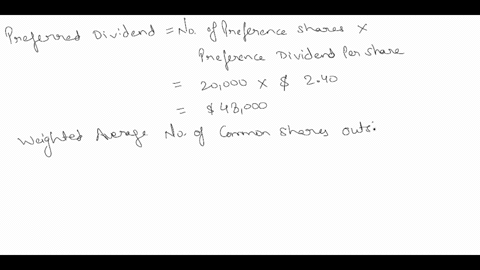 Preferred Dividend = No. of Preference shares X
Preference Dividend Per share
= 20,000 X $ 2.40
= $48,000
Weighted Average No. of Common shares outs: